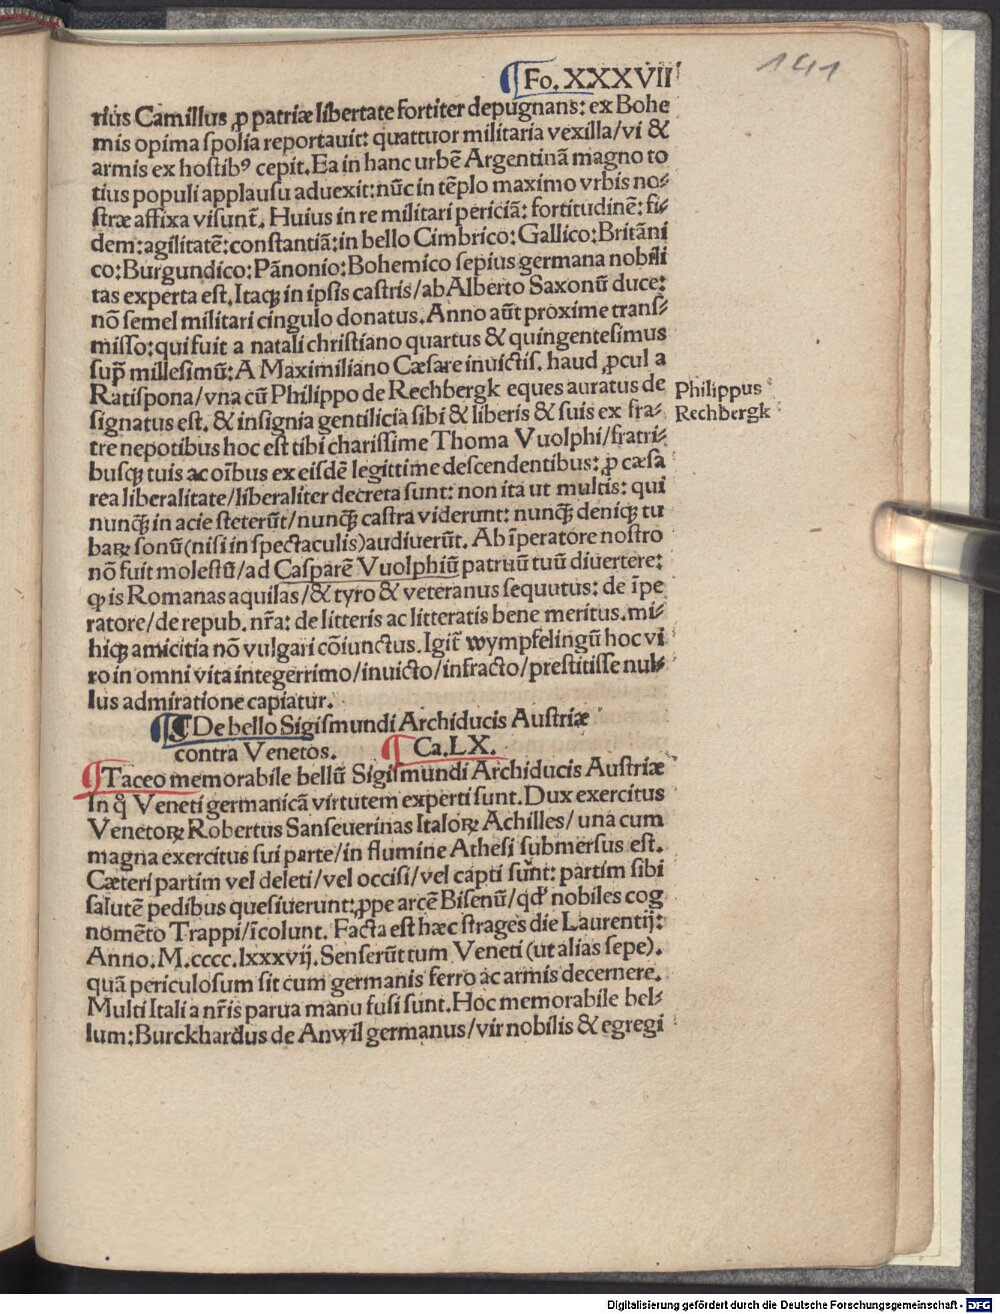 ¶Fo. XXXVII
141
rius Camillus ꝓ patriæ libertate fortiter depugnans: ex Bohe
mis opima ſpolia reportauit: quattuor militaria vexilla/vi &
armis ex hoſtibꝰ cepit. Ea in hanc urbē Argentinā magno to
tius populi applauſu aduexit: nūc in tēplo maximo vrbis no⸗
ſtræ affixa viſunt̃. Huius in re militari periciā: fortitudinē: fi⸗
dem: agilitatē: conſtantiā: in bello Cimbrico: Gallico: Britāni
co: Burgundico: Pānonio: Bohemico ſepius germana nobili
tas experta eſt. Itaqꝫ in ipſis caſtris/ab Alberto Saxonū duce:
nō ſemel militari cingulo donatus. Anno aūt proxime tranſ⸗
miſſo: qui fuit a natali chriſtiano quartus & quingenteſimus
ſup̄ milleſimū: A Maximiliano Cæſare inuictiſ. haud ꝓcul a
Ratiſpona/vna cū Philippo de Rechbergk eques auratus de
Philippus
Rechbergk
ſignatus eſt. & inſignia gentilicia ſibi & liberis & ſuis ex fra⸗
tre nepotibus hoc eſt tibi chariſſime Thoma Vuolphi/fratri⸗
buſqꝫ tuis ac oībus ex eiſdē legittime deſcendentibus: ꝓ cæſa
rea liberalitate/liberaliter decreta ſunt: non ita ut multis: qui
nunqꝫ̄ in acie ſteterūt/nunqꝫ̄ caſtra viderunt: nunqꝫ̄ deniqꝫ tu
baꝝ ſonū (niſi in ſpectaculis) audiuerūt. Ab īperatore noſtro
nō fuit moleſtū/ad Caſparē Vuolphiū patruū tuū diuertere:
ꝙ is Romanas aquilas/& tyro & veteranus ſequutus: de īpe
ratore/de repub. nr̄a: de litteris ac litteratis bene meritus. mi⸗
hiqꝫ amicitia nō vulgari cōiunctus. Igit̃ wympfelingū hoc vi
ro in omni vita integerrimo/inuicto/infracto/preſtitiſſe nul⸗
lus admiratione capiatur.
¶De bello Sigiſmundi Archiducis Auſtriæ
contra Venetos. ¶Ca. LX.
¶Taceo memorabile bellū Sigiſmundi Archiducis Auſtriæ
In q̊ Veneti germanicā virtutem experti ſunt. Dux exercitus
Venetoꝝ Robertus Sanſeuerinas Italoꝝ Achilles/una cum
magna exercitus ſui parte/in flumine Atheſi ſubmerſus eſt.
Cæteri partim vel deleti/vel occiſi/vel capti ſunt: partim ſibi
ſalutē pedibus queſiuerunt: ꝓpe arcē Biſenū/qd' nobiles cog
nomēto Trappi/īcolunt. Facta eſt hæc ſtrages die Laurentij:
Anno. M. cccc. lxxxvij. Senſerūt tum Veneti (ut alias ſepe).
quā periculoſum ſit cum germanis ferro ac armis decernere.
Multi Itali a nr̄is parua manu fuſi ſunt. Hoc memorabile bel⸗
lum: Burckhardus de Anwil germanus/vir nobilis & egregi
Digitalisierung gefördert durch die Deutsche Forschungsgemeinschaft - DFG